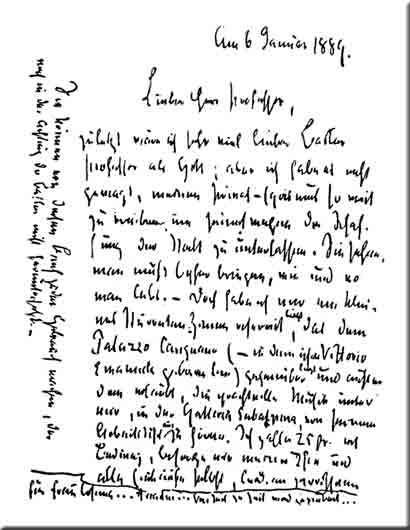 Am 6 Januar 1889.
Lieber Herr Professor,
zuletzt wäre ich sehr viel lieber Basler
Professor als Gott; aber ich habe es nicht
gewagt, meinen Privat-Egoismus so weit
zu treiben, um seinetwegen die Schaf-
fung der Welt zu unterlassen. Sie sehen,
man muß Opfer bringen, wie und wo
man lebt. – Doch habe ich mir ein klei-
nes Studenten-Zimmer reservirt, das dem
Palazzo Carignano (– in dem ich als Vittorio
Emanuele geboren bin) gegenüber liegt und außer-
dem erlaubt, die prachtvolle Musik unter
mir, in der Galleria Subalpina, von seinem
Arbeitstisch aus zu hören. Ich zahle 25 fr. mit
Bedienung, besorge mir meinen Thee und
alle Einkäufe selbst, leide an zerrissenen
für Frau Cosima... Ariadne... Von Zeit zu Zeit wird gezaubert...
Sie können von diesem Brief jeden Gebrauch machen, der
mich in der Achtung der Basler nicht heruntersetzt. –